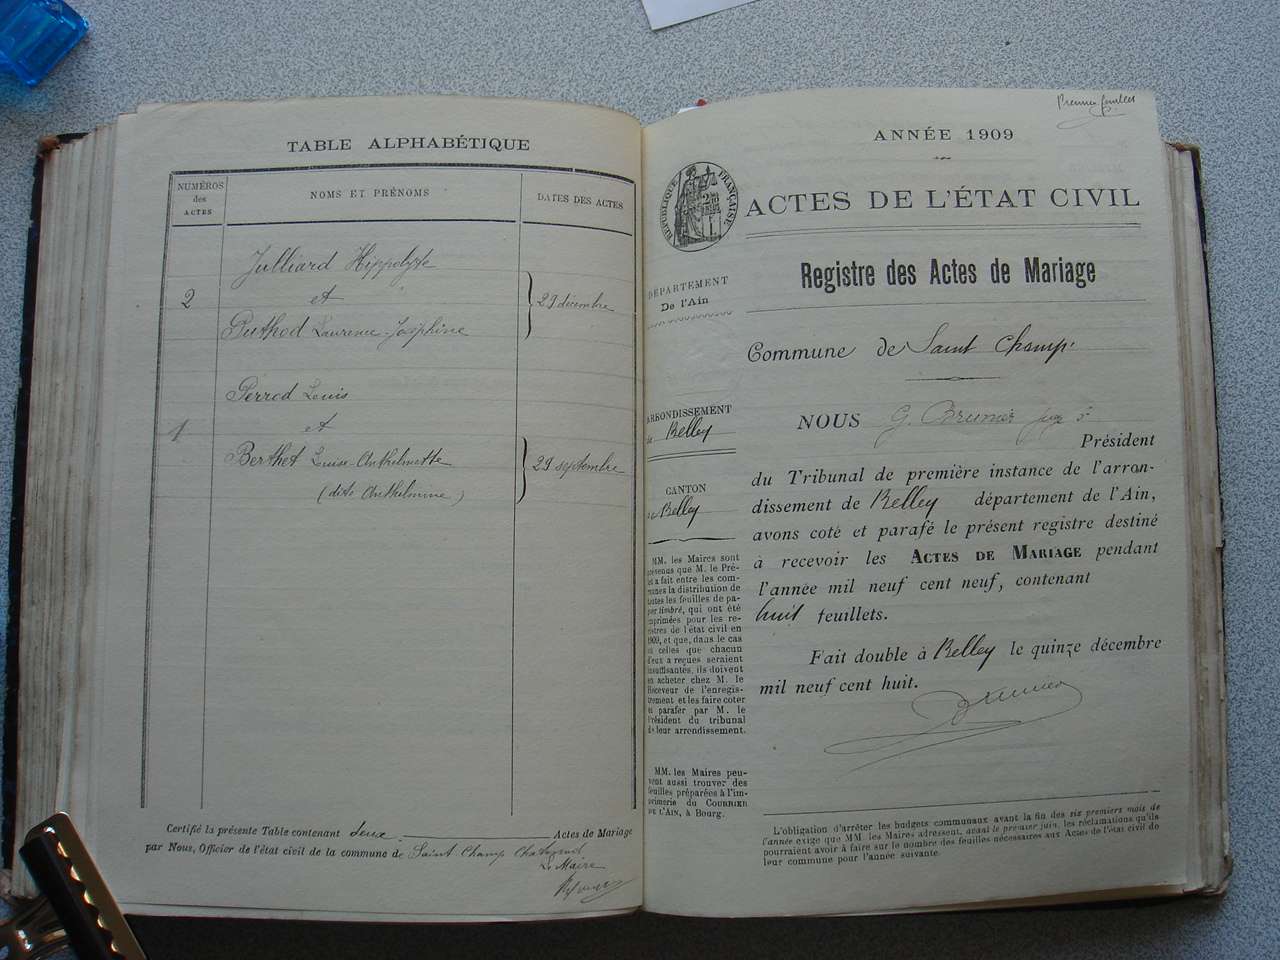 TABLE ALPHABÉTIQUE
NUMÉROS des ACTES
NOMS ET PRÉNOMS
DATES DES ACTES
Julliard Hippolyte
2 et 29 décembre
Puthod Laurence-Joséphine
Perrod Louis
1 et
Berthet Luise-Anthelmette 29 septembre
(dite Anthelmine)
Certifié la présente Table contenant deux Actes de Mariage
par Nous, Officier de l'état civil de la commune de Saint Champ Chatonod
Le Maire
Premier feuillet
ANNÉE 1909
RÉPUBLIQUE FRANÇAISE
ACTES DE L'ÉTAT CIVIL
Registre des Actes de Mariage
DÉPARTEMENT
De l'Ain
Commune de Saint Champ
ARRONDISSEMENT
de Belley
CANTON
de Belley
MM. les Maires sont
prévenus que M. le Pré-
fet a fait entre les com-
munes la distribution de
toutes les feuilles de pa-
pier timbré, qui ont été
imprimées pour les re-
gistres de l'état civil en
1909, et que, dans le cas
où celles que chacun
d'eux a reçues seraient
insuffisantes, ils doivent
en acheter chez M. le
Receveur de l'enregis-
trement et les faire coter
et parafer par M. le
Président du tribunal
de leur arrondissement.
MM. les Maires peu-
vent aussi trouver des
feuilles préparées à l'im-
primerie du COURRIER
DE L'AIN, à Bourg.
NOUS G. Brunier juge
Président
du Tribunal de première instance de l'arron-
dissement de Belley département de l'Ain,
avons coté et parafé le présent registre destiné
à recevoir les ACTES DE MARIAGE pendant
l'année mil neuf cent neuf, contenant
huit feuillets.
Fait double à Belley le quinze décembre
mil neuf cent huit.
Brunier
L'obligation d'arrêter les budgets communaux avant la fin des six premiers mois de
l'année exige que MM. les Maires adressent, avant le premier juin, les réclamations qu'ils
pourraient avoir à faire sur le nombre des feuilles nécessaires aux Actes de l'état civil de
leur commune pour l'année suivante.